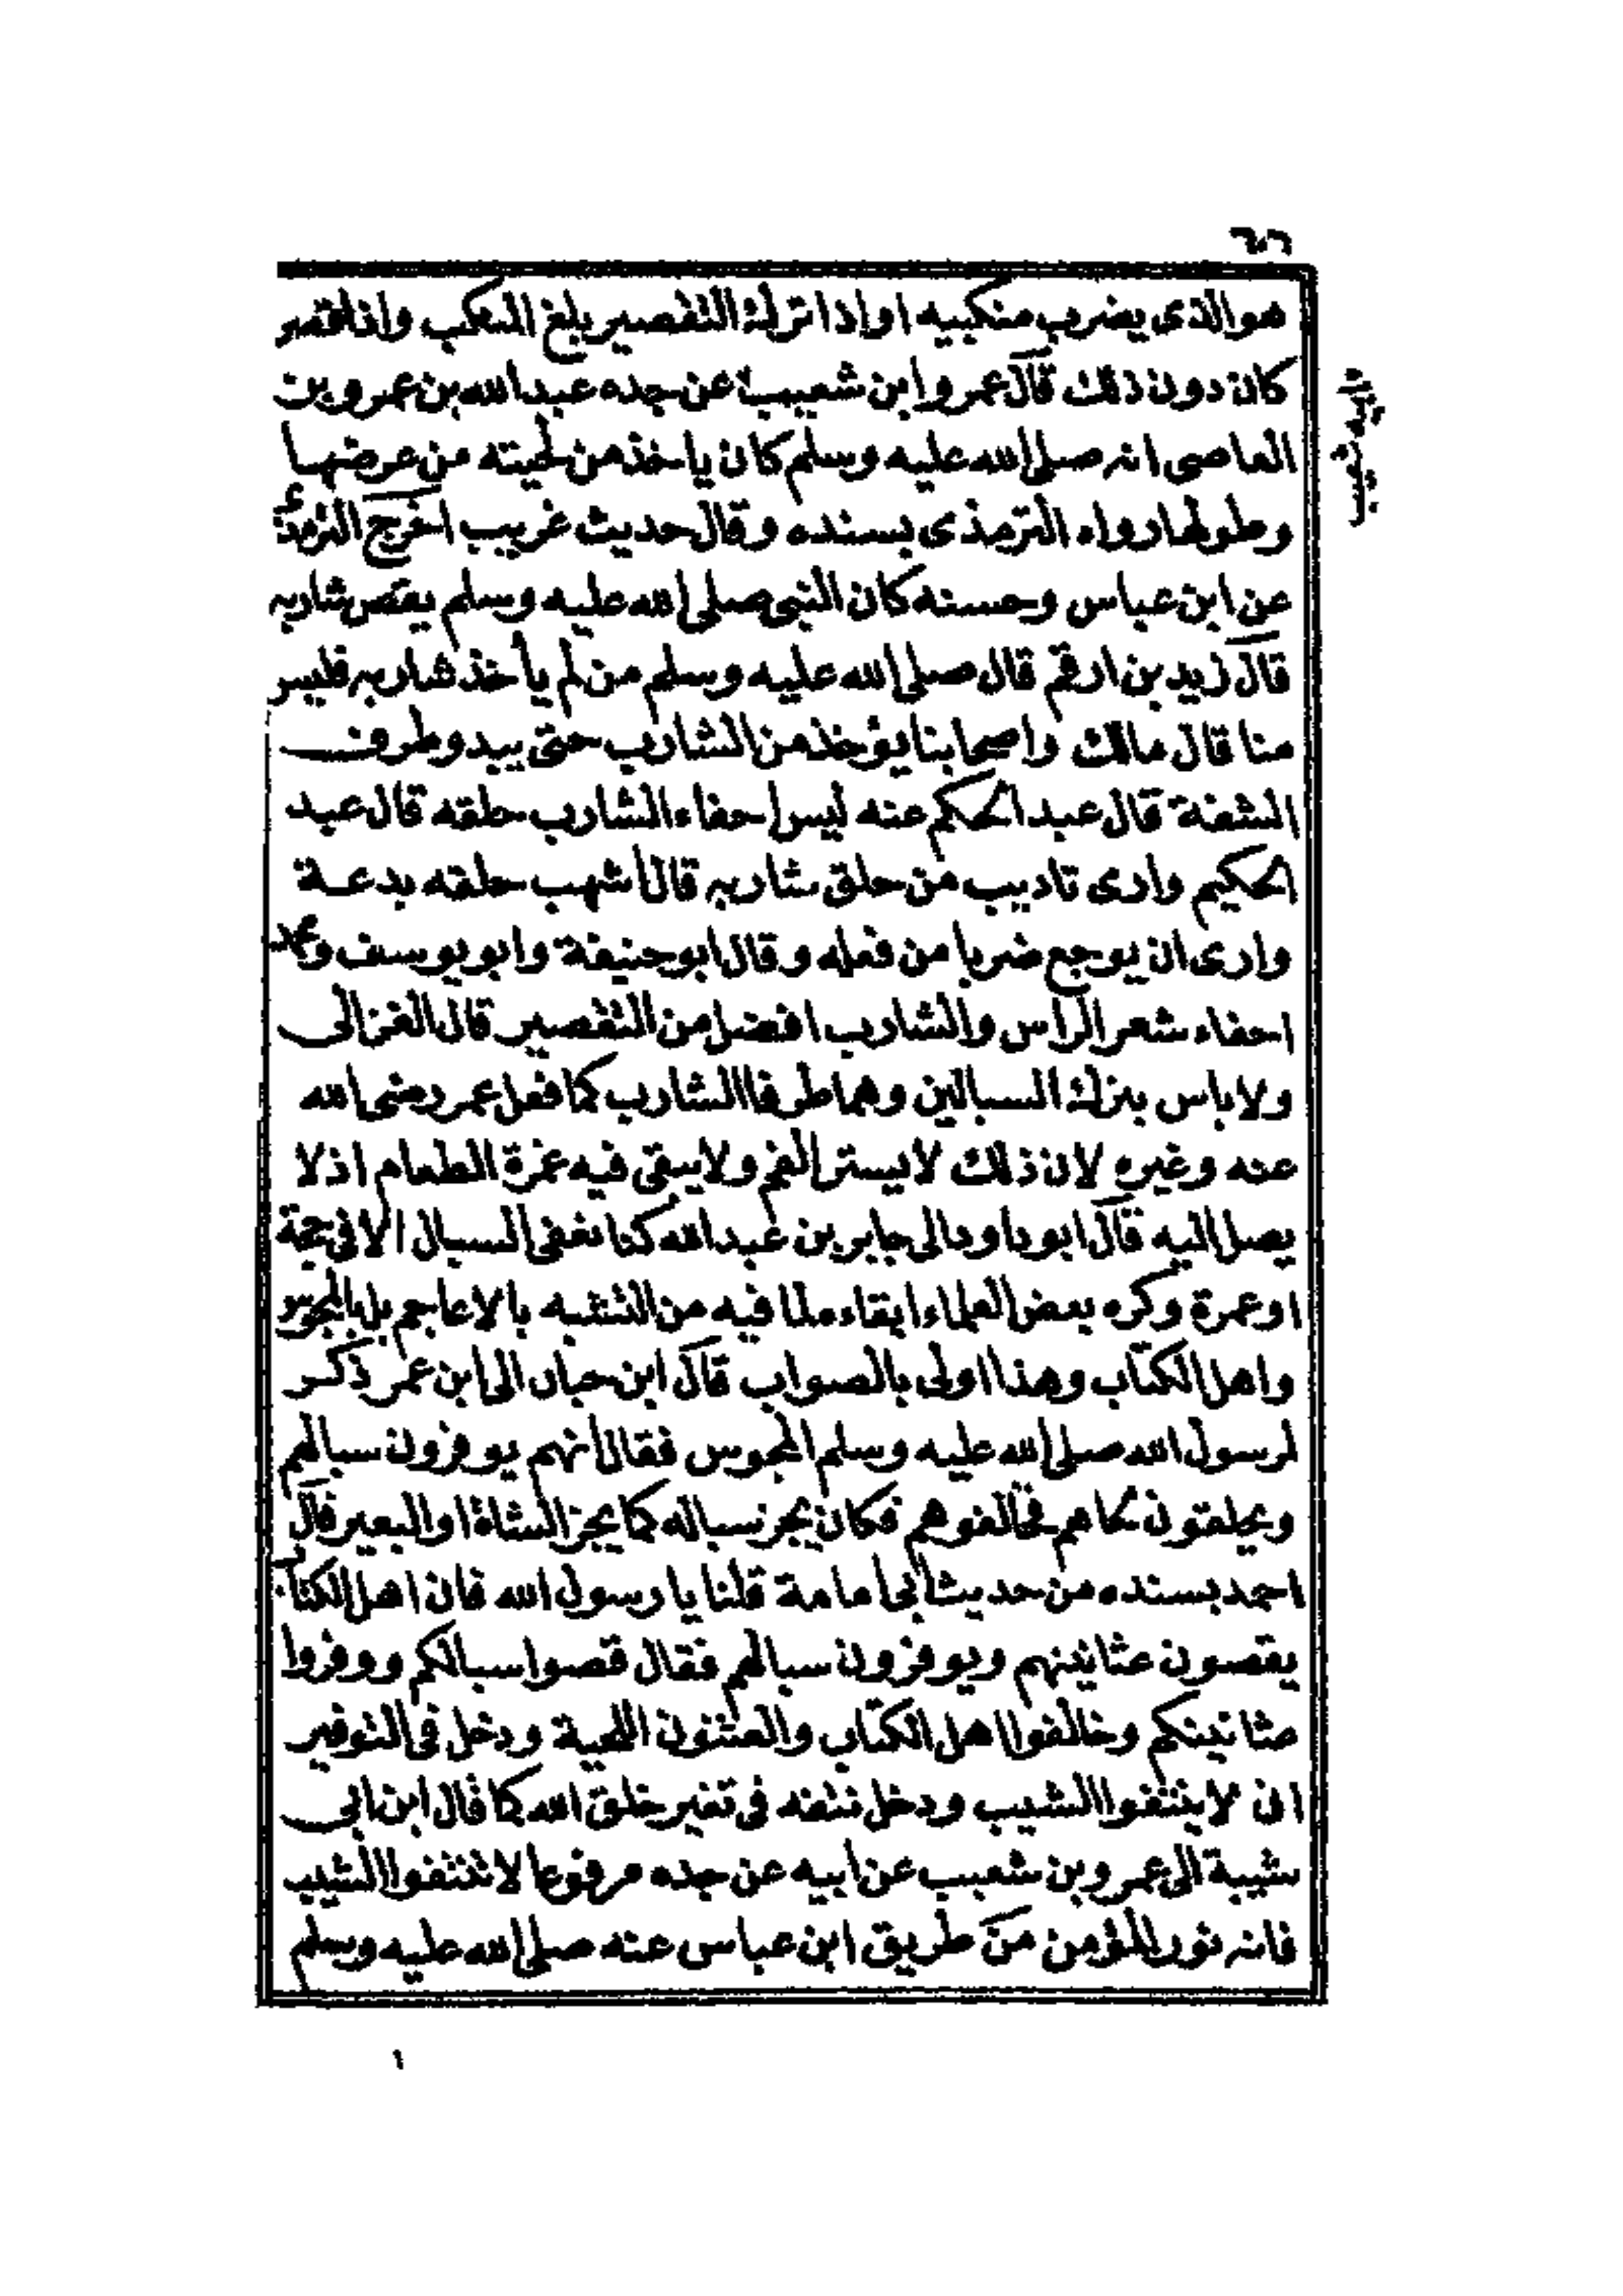 هو الذى يضرب منكبيه او اذا ترك التقصير بلغ المنكب واذا قصر
كان دون ذلك قال عمرو ابن شعيب عن جده عبد الله بن عمرو بن
العاصى انه صلى الله عليه وسلم كان ياخذ من لحيته من عرضها
وطولها رواه الترمذى بسنده وقال حديث غريب اخرج الترمذى
عن ابن عباس وحسنه كان النبى صلى الله عليه وسلم يقص شاربه
قال زيد بن ارقم قال صلى الله عليه وسلم من لم يأخذ شاربه فليس
منا قال مالك واصحابنا يؤخذ من الشارب حتى يبدو طرف
الشفة قال عبد الحكم عنه ليس احفاء الشارب حلقه قال عبد
الحكيم وارى تاديب من حلق شاربه قال اشهب حلقه بدعة
وارى ان يوجع ضربا من فعله وقال ابو حنيفة وابو يوسف ومحمد
احفاء شعر الراس والشارب افضل من التقصير قال الغزالى
ولا باس بترك السبالين وهما طرفا الشارب كما فعل عمر رضى الله
عنه وغيره لان ذلك لا يستر الفم ولا يبقى فيه غمرة الطعام اذ لا
يصل اليه قال ابو داود الى جابر بن عبد الله كنا نعفى السبال الا فى حجة
او عمرة وكره بعض العلماء ابقاءه لما فيه من التشبه بالاعاجم بل بالمجوس
واهل الكتاب وهذا اولى بالصواب قال ابن حبان الى ابن عمر ذكر
لرسول الله صلى الله عليه وسلم المجوس فقال انهم يوفرون سبالهم
ويحلقون لحاهم فخالفوهم فكان يجز سباله كما يجز الشاة او البعير قال
احمد بسنده من حديث ابى امامة قلنا يا رسول الله فان اهل الكتاب
يقصون عثانينهم ويوفرون سبالهم فقال قصوا سبالكم ووفروا
عثانينكم وخالفوا اهل الكتاب والعثنون اللحية ودخل فى التوفير
ان لا ينتفوا الشيب ودخل نتفه فى تغير خلق الله كما قال ابن ابى
شيبة الى عمرو بن شعيب عن ابيه عن جده مرفوعا لا تنتفوا الشيب
فانه نور المؤمن من طريق ابن عباس عنه صلى الله عليه وسلم
١